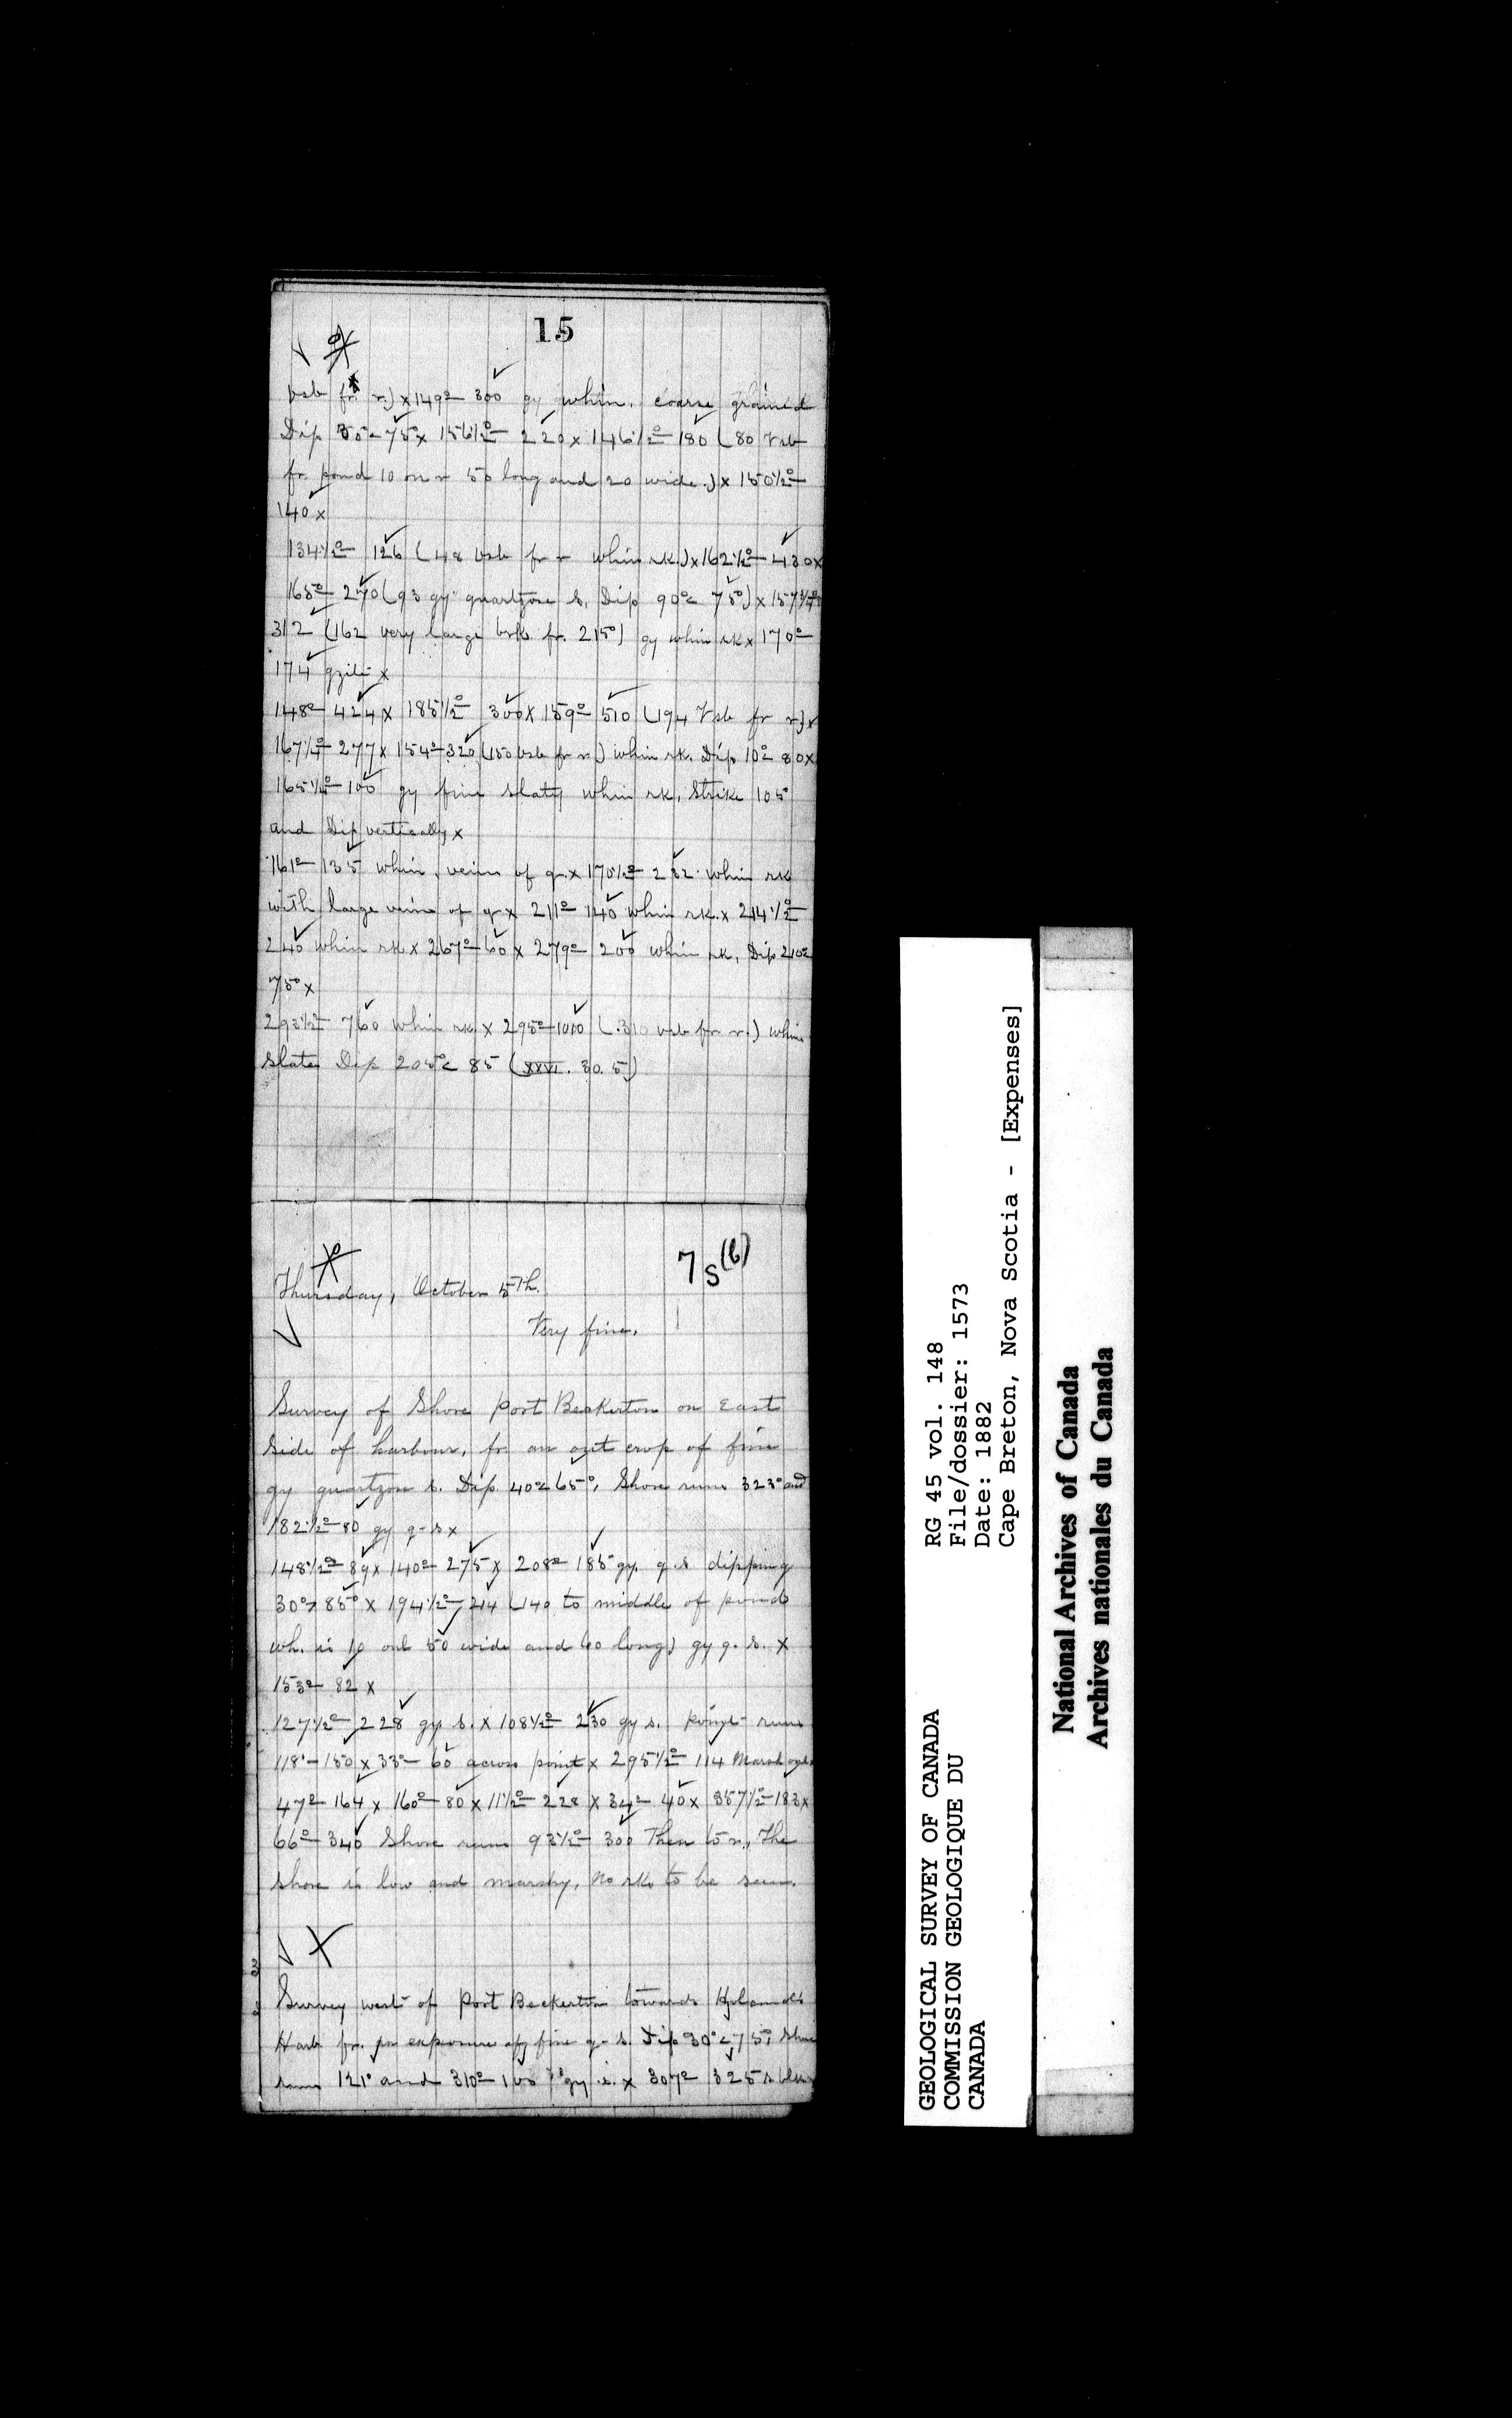 15
vsb fr. r.) x 149°– 300 gy whin. coarse grained
Dip 35°< 75° x 156½°– 220 x 146½°– 180 (80 Vsb
fr. pond 10 on r 50 long and 20 wide.) x 150½°–
140 x
134½°– 126 (48 Vsb fr r whin rk.) x 162½°– 430 x
165°– 270 (93 gy quartzose s. Dip 90°< 75°) x 157¾°
312 (162 very large brk fr. 215°) gy whin rk x 170°–
174 qzite x
148°– 424 x 185½° 300 x 159°– 510 (194 Vsb fr r) x
167¼°– 277 x 154°– 320 (150 vsb fr r.) whin rk. Dip 10°< 80 x
165¼°– 100 gy fine slaty whin rk. Strike 105
and Dip vertically x
161°– 135 whin. veins of q. x 170½°– 232 whin rk
with large veins of q x 211°– 140 whin rk. x 214½°–
240 whin rk x 267°– 60 x 279°– 200 whin rk. Dip 210°<
75° x
293½°– 760 whin rk x 295°– 1010 (310 vsb fr r.) whin
slates Dip 205°< 85 (XXVI. 30. 5)
7 S (6)
Thursday, October 5th.
Very fine.
Survey of Shore Port Beckerton on East
Side of harbour, fr. an out crop of fine
gy quartzose s. Dip 40°< 65°. Shore runs 323° and
182½°– 80 gy q-s x
148½°– 89 x 140°– 275 x 208°– 185 gy. q s dipping
30°> 85° x 194½°– 214 (140 to middle of pond
wh. is 10 out 50 wide and 60 long) gy q. s. x
153°– 82 x
127½°– 228 gy s. x 108½°– 230 gy s. point runs
118°– 150 x 33°– 60 across point x 295½°– 114 Marsh
47°– 164 x 160°– 80 x 11½°– 228 x 34°– 40 x 357½°– 183 x
66°– 340 Shore runs 93½°– 300 Then to r. The
shore is low and marshy, no rks to be seen.
Survey west of Port Beckerton towards
Harb. fr. an exposure of fine q-s. Dip 30°< 75° Shore
runs 121° and 310°– 100 gy s. x 307°– 325 s
GEOLOGICAL SURVEY OF CANADA
COMMISSION GEOLOGIQUE DU
CANADA
RG 45 vol. 148
File/dossier: 1573
Date: 1882
Cape Breton, Nova Scotia - [Expenses]
National Archives of Canada
Archives nationales du Canada